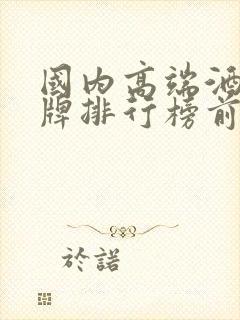 國内高端酒
牌排行榜前
於諾